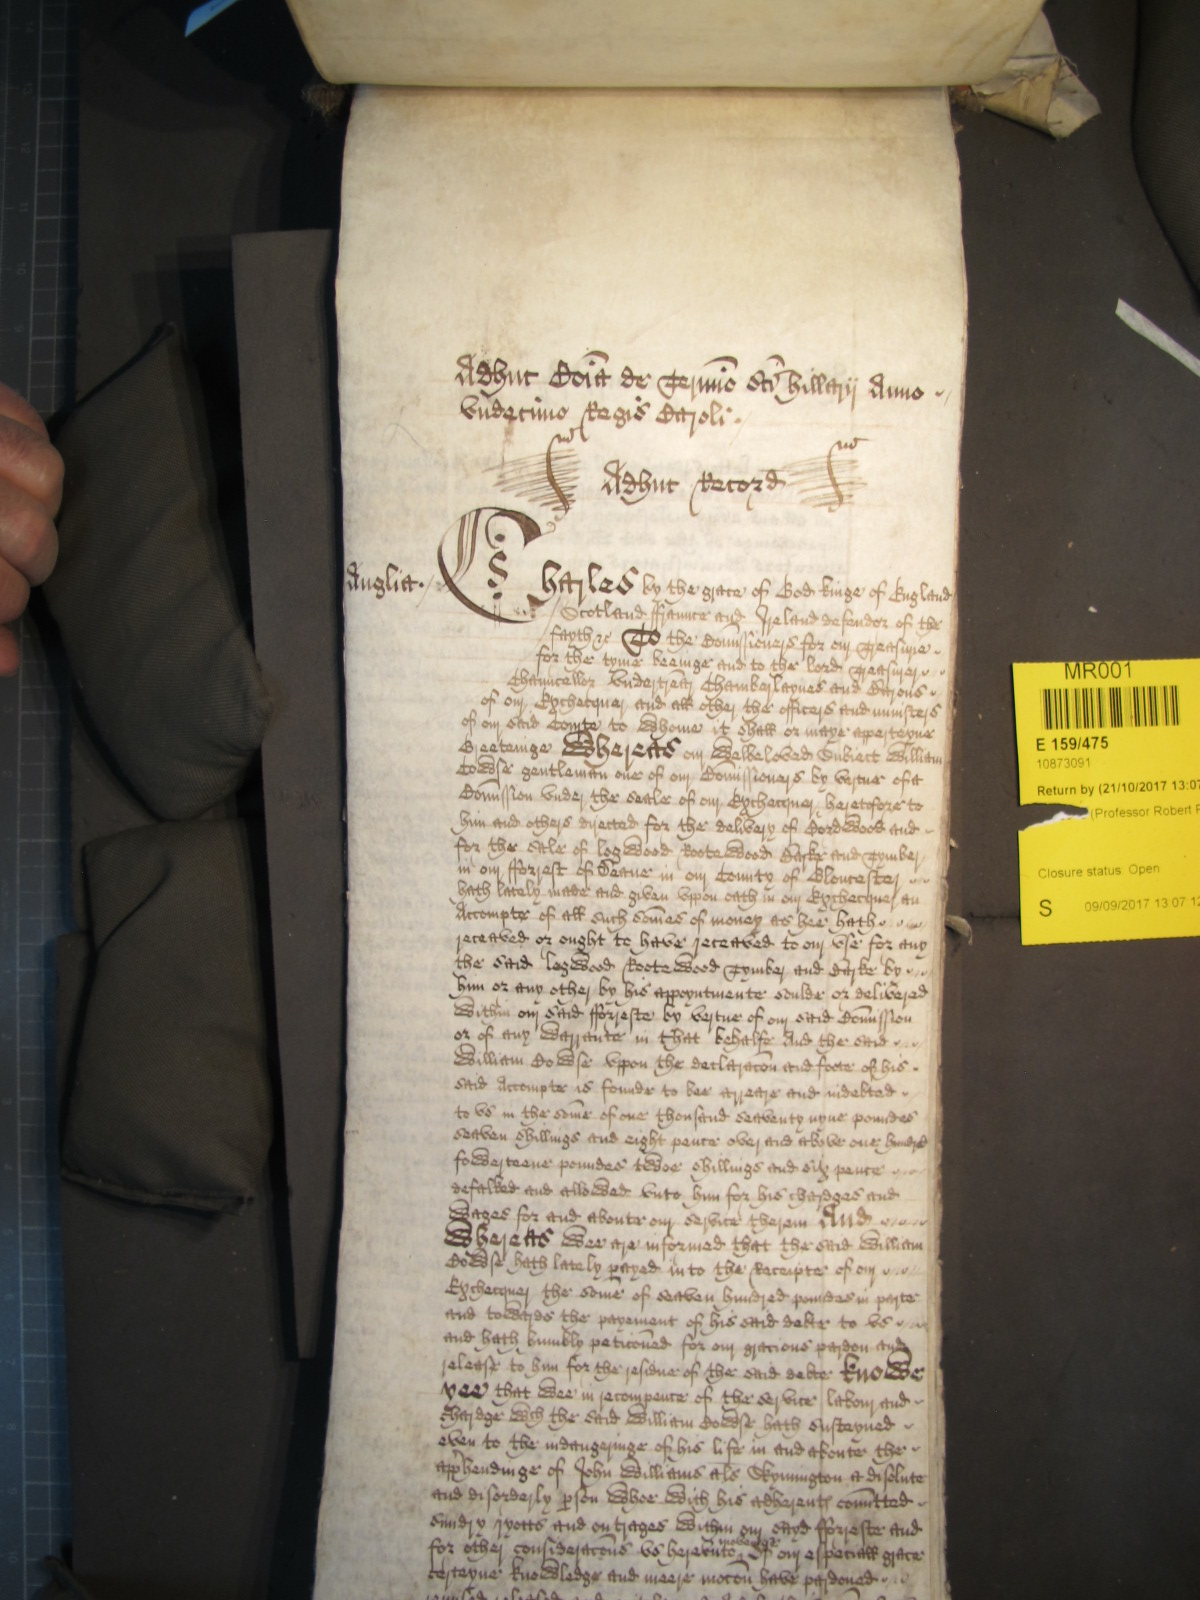 Adhuc Coia de Termino Sci Hillarij Anno
vndecimo Regis Caroli.
Adhuc Record
Anglia.
Charles by the grace of God kinge of England
Scotland ffraunce and Ireland defendor of the
fayth &c To the Comissioners for our Treasurie
for the tyme beeinge and to the lord Treasurer
Chauncellor vndertrear Chamberlaynes and Barons
of our Exchequer and all other the officers and ministers
of our said Courte to whome it shall or maye apperteyne
Greetinge Whereas our welbeloved Subiect William
Cowse gentleman one of our Comissioners by vertue of a
Comission vnder the seale of our Exchequer heretofore to
him and others directed for the delivery of Cordwood and
for the sale of logwood Rootewood Barke and Tymber
in our fforrest of Deane in our County of Gloucester
hath lately made and given vppon oath in our Exchequer an
Accompte of all such somes of money as hee hath
receaved or ought to have receaved to our vse for any
the said logwood Rootewood Tymber and Barke by
him or any other by his appoyntmente soulde or delivered
within our said fforreste by vertue of our said Comission
or of any warrante in that behalfe And the said
William Cowse vppon the declaracon and foote of his
said Accompte is founde to bee arreare and indebted
to vs in the some of one thousand seaventy nyne poundes
seaven shillings and eight pence over and above one hundred
fowerteene poundes twoe shillings and six pence
defalked and allowed vnto him for his chardges and
wages for and aboute our service therein And
Whereas wee are informed that the said William
Cowse hath lately payed in to the Receipte of our
Exchequer the some of seaven hundred poundes in parte
and towards the payement of his said debte to vs
and hath humbly peticoned for our gracious pardon and
release to him for the residue of the said debte Knowe
yee that wee in recompence of the service labour and
chardge wch the said William Cowse hath susteyned
even to the indangeringe of his life in and aboute the
apphendinge of John Williams als Skymington a disolute
and disorderly pson whoe with his adherents comitted
sundry ryotts and outrages within our sayd fforreste and
for other consideracons vs herevnto moveinge Of our especiall grace
certeyne knowledge and meere mocon have pardoned
MR001
E 159/475
10873091
Return by (21/10/2017 13:07
(Professor Robert
Closure status: Open
S 09/09/2017 13:07